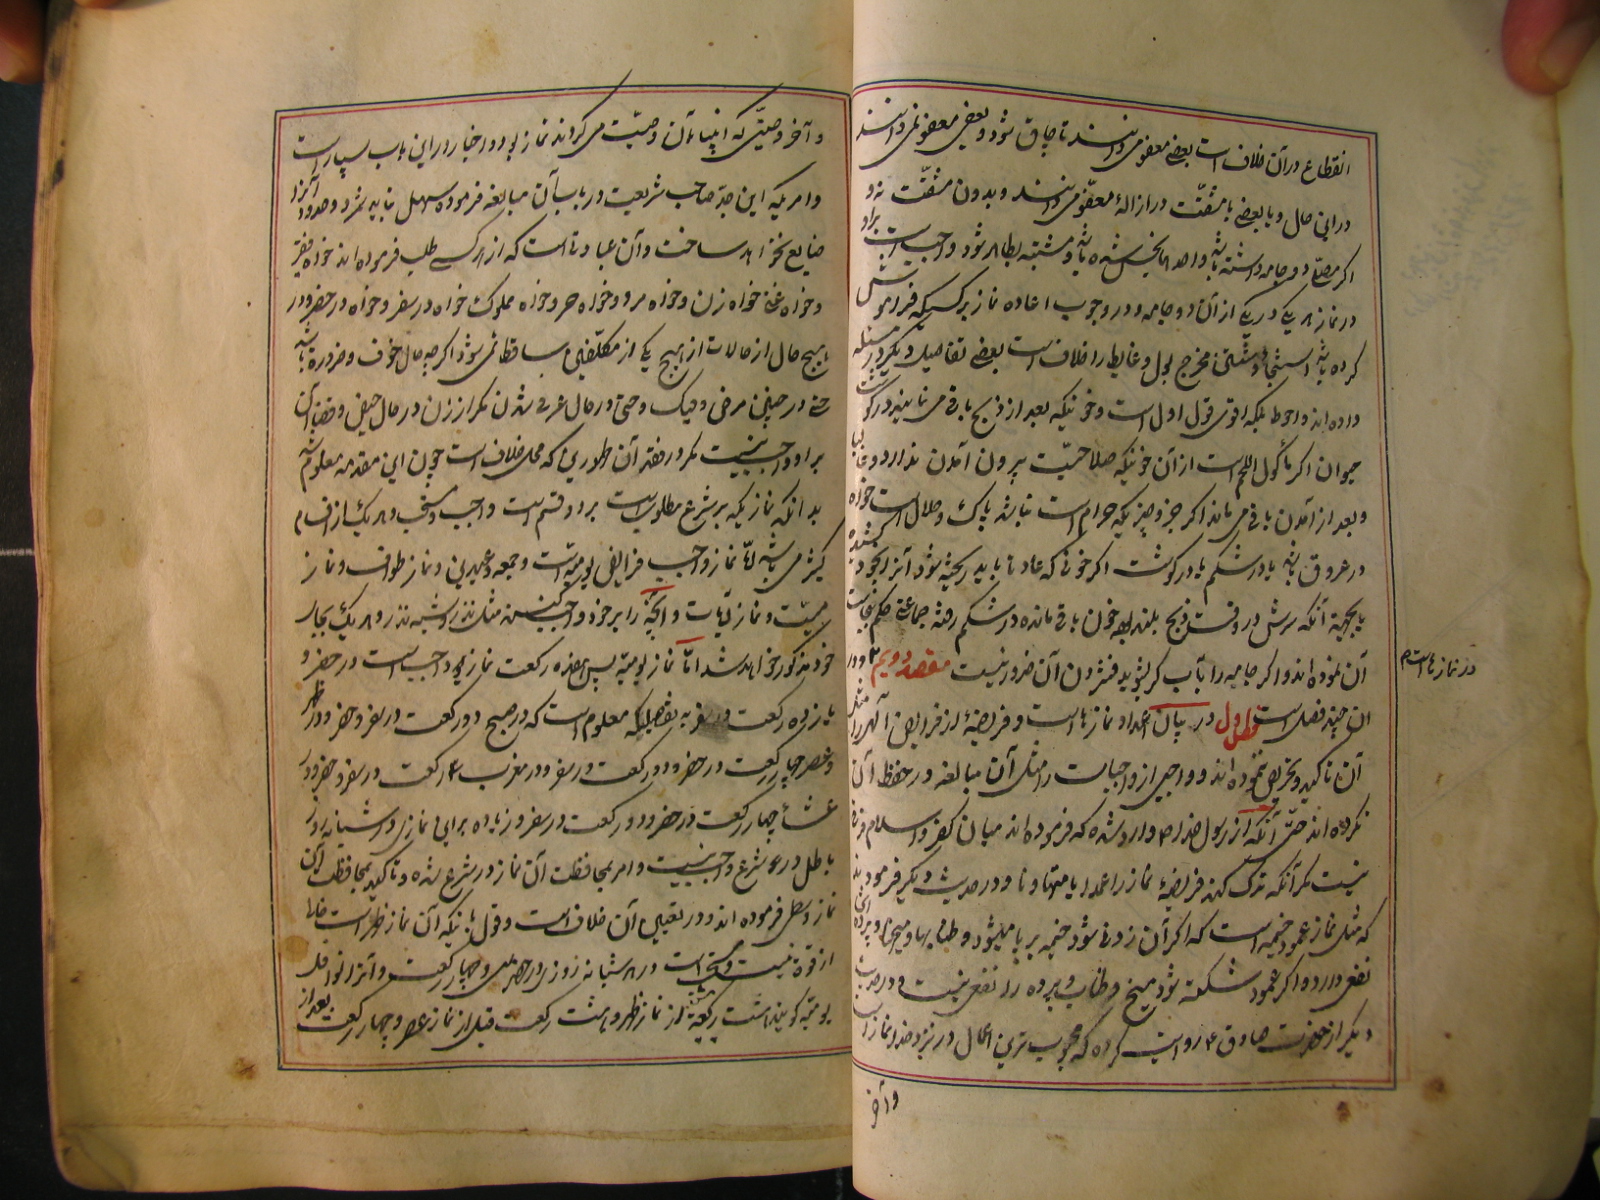 انقطاع در آن خلاف است بعضی معفو می دانند تا چاق شود و بعضی معفو نمی دانند
در این حال و با بعضی با مشقت در ازاله معفو می دانند و بدون مشقت نه و
اگر مصلی دو جامه داشته باشد و احدهما نجس شده باشد و مشتبه بطاهر شود واجب است براو
در نماز هر یکی در یکی از آن دو جامه و در وجوب اعاده نماز بر کسیکه فراموش
کرده باشد استنجا و شستن مخرج بول و غایط را خلاف است بعضی تفاصیل دیگر در مسئله
داده اند و احوط بلکه اقوی قول اول است و خونیکه بعد از ذبح باقی می ماند در گوشت
حیوان اگر مأکول اللحم است از آن خونیکه صلاحیت بیرون آمدن ندارد و غالبا
و بعد از آمدن باقی می ماند اگر جزو چیزیکه حرام است نباشد پاک و حلال است خواه
در عروق باشد یا در شکم یا در گوشت اگر خونی که عادتا باید ریخته شود آنرا بخود کشیده
یا بجهة آنکه سرش در وقت ذبح بلند بود خون باقی مانده در شکم رفته جماعتی حکم بنجاست
آن نموده اند و اگر جامه را بآب کر بشوید فشردن آن ضرور نیست مقصد دویم ۲ و در
ان چند فصل است فصل اول در بیان اعداد نمازها است و فریضهٔ از فرایض الهی را مثل
آن تاکید و تحریص ننموده اند و واجبی از واجبات را مثل آن مبالغه در حفظ آن
نکرده اند حتی آنکه از رسول خدا ص وارد شده که فرموده اند میان کفر و اسلام فرقی
نیست مگر آنکه ترک کند فریضهٔ نماز را عمدا یا متهاونا و در حدیث دیگر فرموده اند
که مثل نماز عمود خیمه است که اگر آن زده شود خیمه بر پا میشود و طنابها و میخها و پرده
نفعی دارد و اگر عمود شکسته شود میخ و طناب و پرده را نفعی نیست و در حدیث
دیگر از حضرت صادق ع روایت کرده که محبوب ترین اعمال در نزد خدا نماز است
و آخر
در نمازها است م
و آخر وصیتی که انبیاء بآن وصیت می کردند نماز بود و اخبار در این باب بسیار است
و امریکه این چه صاحب شریعت در باب آن مبالغه فرموده سهل نباید شمرد و حدود آنرا
ضایع نخواهد ساخت و آن عبادتی است که از هر کسی طلب فرموده اند خواه فقیر
و خواه غنی خواه زن و خواه مرد و خواه حر و خواه مملوک خواه در سفر و خواه در حضر و در
هیچ حال از حالات از هیچ یکی از مکلفین ساقط نمی شود اگر چه حال خوف و ضرورة باشد
حتی در حین مرض و جنگ و حتی در حال غرق شدن مگر از زن در حال حیض و قضاء آن
بر او واجب نیست مگر در فقد آن طهوری که محل خلاف است چون این مقدمه معلوم شد
بدانکه نمازیکه بر شرع مطلوبست بر دو قسم است واجب و مستحب و هر یک از اقسام
کثیر می باشد اما نماز واجب فرایض یومیه است و جمعه و عیدین و نماز طواف و نماز
میت و نماز آیات و آنچه را بر خود واجب کنند مثل نذر و شبه نذر و هر یک بجای
خود مذکور خواهد شد اما نماز یومیه پس هفده رکعت نماز واجب است در حضر و
یازده رکعت در سفر به تفصیلیکه معلوم است که در صبح دو رکعت در سفر و حضر و در ظهر
و عصر چهار رکعت در حضر و دو رکعت در سفر و در مغرب ۳ رکعت در سفر و حضر و در
عشا چهار رکعت در حضر و دو رکعت در سفر و زیاده بر این نمازی در شبانه روز
باطل در شرع واجب نیست و امر بمحافظت آن نماز در شرع شده و تاکید بمحافظت این
نماز وسطی فرموده اند و در تعیین آن خلاف است و قول باینکه آن نماز ظهر است خالی
از قوة نیست و مستحب است در هر شبانه روزی در حضر سی و چهار رکعت و آنرا نوافل
یومیه گویند هشت رکعت پیش از نماز ظهر و هشت رکعت قبل از نماز عصر و چهار رکعت بعد از